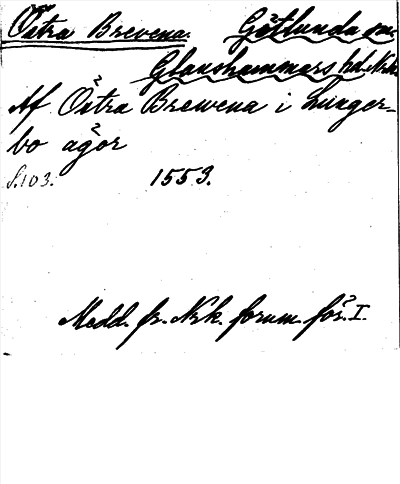 Östra Brevena. Götlunda sn.
Glanshammars hd. Nrk.
Af Östra Brewena i Lunger-
bo ägor
S.103. 1553.
Medd. fr. Nrk. fornm. för. I.